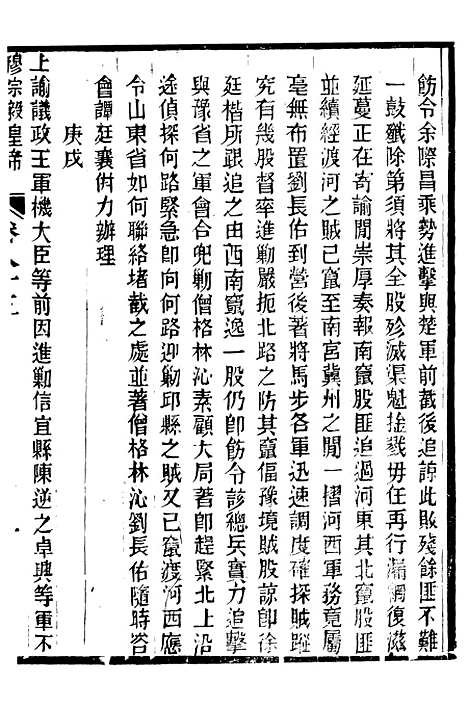 飭令余際昌乘勢進擊與楚軍前截後追諒此敗殘餘匪不難
一鼓殲除第須將其全股殄滅渠魁擒戮毋任再行漏網復滋
延蔓正在寄諭閒崇厚奏報南竄股匪追過河東其北竄股匪
並續經渡河之賊已竄至南宮冀州之閒一摺河西軍務竟屬
毫無布置劉長佑到營後著將馬步各軍迅速調度確探賊蹤
究有幾股督率進勦嚴扼北路之防其竄偪豫境賊股諒卽徐
廷楷所跟追之由西南竄逸一股仍卽飭令該總兵實力追擊
與豫省之軍會合兜勦僧格林沁素顧大局著卽趕緊北上沿
途偵探何路緊急卽向何路迎勦邱縣之賊又已竄渡河西應
令山東省如何聯絡堵截之處並著僧格林沁劉長佑隨時咨
會譚廷襄併力辦理
庚戌
上諭議政王軍機大臣等前因進勦信宜縣陳逆之卓興等軍不
穆宗毅皇帝